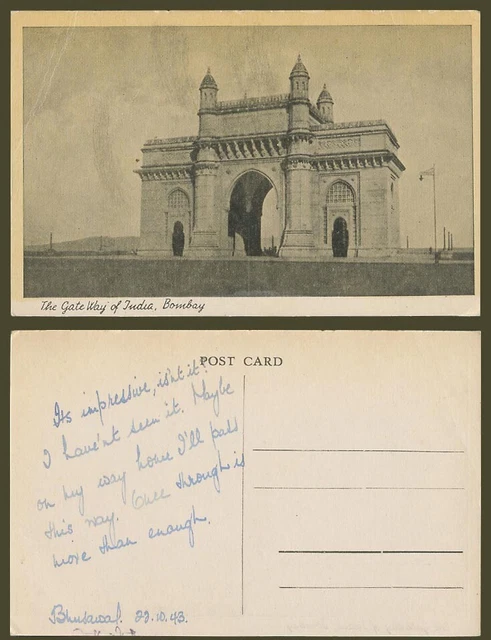 The Gate Way of India, Bombay
POST CARD
Its impressive, isn't it?
I have'nt seen it. Maybe
on my way home I'll pass
this way. Once through is
more than enough.
29.10.43.